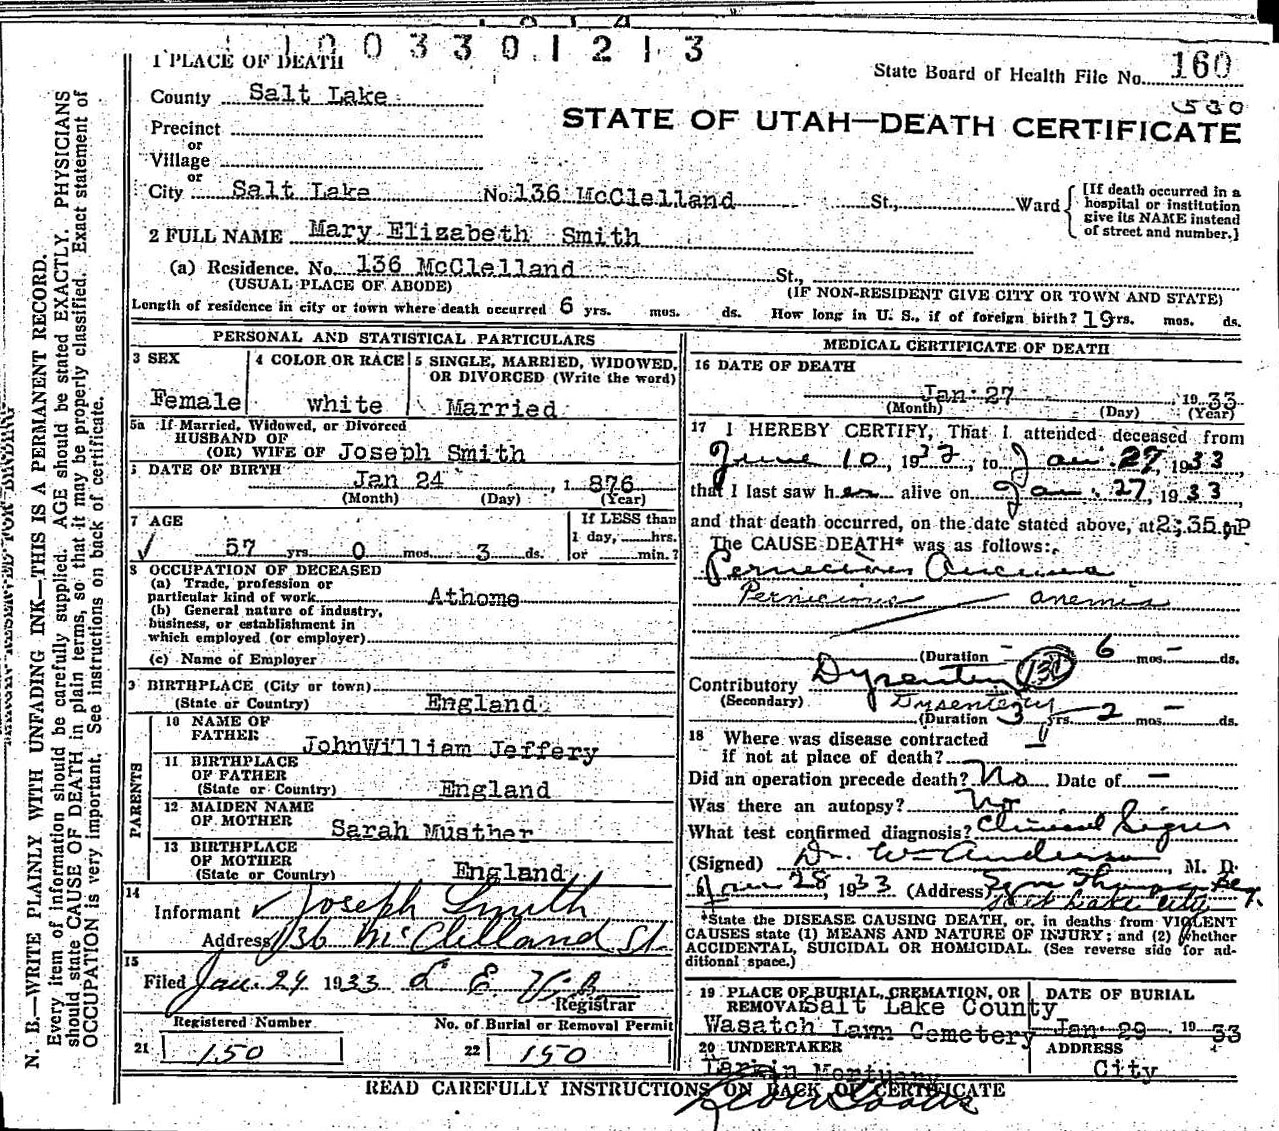 1 0 0 3 3 0 1 2 1 3
1 PLACE OF DEATH
State Board of Health File No. 160
County Salt Lake
530
STATE OF UTAH—DEATH CERTIFICATE
Precinct
or
Village
or
City Salt Lake No. 136 McClelland St., Ward
[If death occurred in a
hospital or institution
give its NAME instead
of street and number.]
2 FULL NAME Mary Elizabeth Smith
(a) Residence. No. 136 McClelland St.,
(USUAL PLACE OF ABODE) (IF NON-RESIDENT GIVE CITY OR TOWN AND STATE)
Length of residence in city or town where death occurred 6 yrs. mos. ds. How long in U. S., if of foreign birth? 19 yrs. mos. ds.
PERSONAL AND STATISTICAL PARTICULARS
3 SEX
Female
4 COLOR OR RACE
white
5 SINGLE, MARRIED, WIDOWED,
OR DIVORCED (Write the word)
Married
5a If Married, Widowed, or Divorced
HUSBAND OF
(OR) WIFE OF Joseph Smith
DATE OF BIRTH
Jan 24, 1 876
(Month) (Day) (Year)
7 AGE
57 yrs. 0 mos. 3 ds.
If LESS than
1 day, hrs.
or min.?
8 OCCUPATION OF DECEASED
(a) Trade, profession or
particular kind of work Athome
(b) General nature of industry,
business, or establishment in
which employed (or employer)
(c) Name of Employer
9 BIRTHPLACE (City or town)
(State or Country) England
PARENTS
10 NAME OF
FATHER
JohnWilliam Jeffery
11 BIRTHPLACE
OF FATHER
(State or Country) England
12 MAIDEN NAME
OF MOTHER
Sarah Musther
13 BIRTHPLACE
OF MOTHER
(State or Country) England
14
Informant Joseph Smith
Address 136 McClelland St.
15
Filed Jan. 29 1933
Registrar
Registered Number
21 150
No. of Burial or Removal Permit
22 150
MEDICAL CERTIFICATE OF DEATH
16 DATE OF DEATH
Jan 27, 19 33
(Month) (Day) (Year)
17 I HEREBY CERTIFY, That I attended deceased from
June 10, 1932, to Jan. 27, 1933
that I last saw her alive on Jan. 27, 1933,
and that death occurred, on the date stated above, at 2:35 P
The CAUSE DEATH* was as follows:
Pernicious Anemia
Pernicious anemia
(Duration - 6 mos - ds.
Contributory Dysentery
(Secondary) Dysentery
(Duration 3 yrs. 2 mos - ds.
18 Where was disease contracted
if not at place of death?
Did an operation precede death? No Date of —
Was there an autopsy? No
What test confirmed diagnosis? Clinical Signs
(Signed) Dr. Wm Anderson, M. D.
Jan 28, 1933 (Address)
Salt Lake City
*State the DISEASE CAUSING DEATH, or, in deaths from VIOLENT
CAUSES state (1) MEANS AND NATURE OF INJURY; and (2) whether
ACCIDENTAL, SUICIDAL OR HOMICIDAL. (See reverse side for ad-
ditional space.)
19 PLACE OF BURIAL, CREMATION, OR
REMOVAL Salt Lake County
Wasatch Lawn Cemetery
DATE OF BURIAL
Jan 29, 19 33
20 UNDERTAKER
Larkin Mortuary
ADDRESS
City
READ CAREFULLY INSTRUCTIONS ON BACK OF CERTIFICATE
N. B.—WRITE PLAINLY WITH UNFADING INK—THIS IS A PERMANENT RECORD.
Every item of information should be carefully supplied. AGE should be stated EXACTLY. PHYSICIANS
should state CAUSE OF DEATH in plain terms, so that it may be properly classified. Exact statement of
OCCUPATION is very important. See instructions on back of certificate.